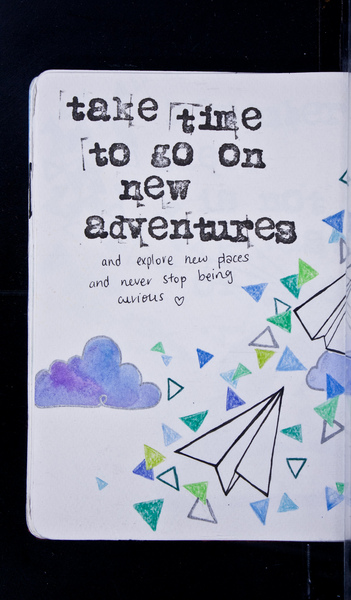 take time
to go on
new
adventures
and explore new places
and never stop being
curious ♡